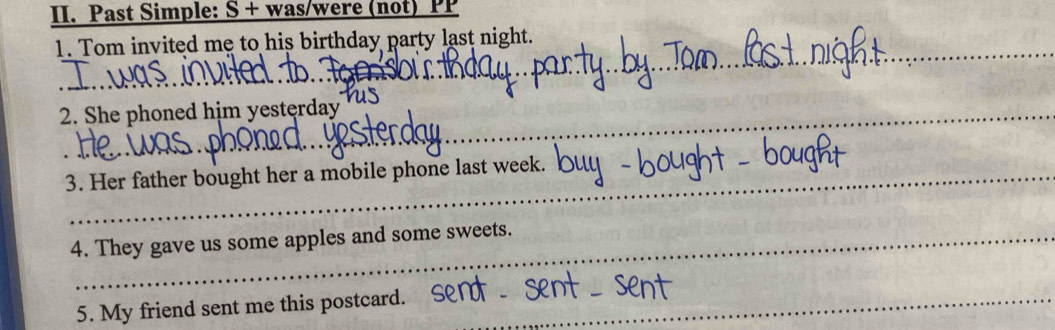 II. Past Simple: S + was/were (not) PP
1. Tom invited me to his birthday party last night.
I was invited to his birthday party by Tom last night
2. She phoned him yesterday
He was phoned yesterday
3. Her father bought her a mobile phone last week. buy - bought - bought
4. They gave us some apples and some sweets.
5. My friend sent me this postcard. send - sent - sent